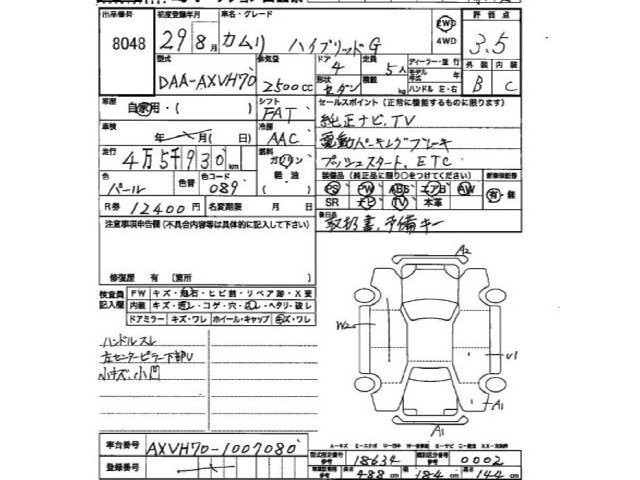 出品番号 初度登録年月 車名・グレード 2WD 4WD 評価点
8048 29年8月 カムリ ハイブリッドG 3.5
型式 排気量 ドア 4 定員 5人 ディーラー・並行 外装 内装
DAA-AXVH70 2500cc 形状 セダン 積載 kg モデル年式 年 ハンドル 左・右 B C
車歴 自家用・( ) シフト FAT セールスポイント(正常に機能するものに限ります)
車検 年 月( 日) 冷房 AAC 純正ナビ、TV
走行 4万5千930km 燃料 ガソリン 軽油 電動パーキングブレーキ
プッシュスタート、ETC
色 パール 色替 色コード 089 装備品(純正品に限り○をつけてください) 新車保証書
PS PW ABS エアB AW 有・無
R券 12400円 名変期限 月 日 SR ナビ TV 本革
後日品
注意事項申告欄(不具合内容等は具体的に記入して下さい) 取説書、予備キー
修復歴 有 [箇所 ]
検査員記入欄 FW キズ・飛石・ヒビ割・リペア跡・X要
内装 キズ・汚レ・コゲ・穴・スレ・ヘタリ・破レ
ドアミラー キズ・ワレ ホイール・キャップ キズ・ワレ
ハンドルスレ
左センターピラー下部U
小キズ、小凹
A2
W2
U1
A1
A1
A-キズ E-エクボ U-凹 W-
車台番号 AXVH70-1007080
型式指定番号 参考 18634 類別区分番号 参考 0002
登録番号
長さ 488 cm 幅 184 cm 高さ 144 cm